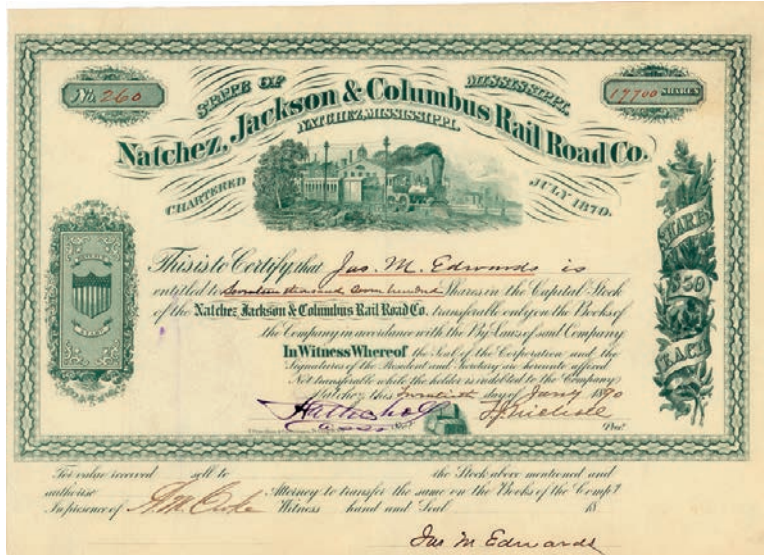 No. 260
STATE OF MISSISSIPPI.
17700 SHARES
Natchez, Jackson & Columbus Rail Road Co.
NATCHEZ, MISSISSIPPI.
CHARTERED JULY 1870.
SHARES
$50
EACH
This is to Certify, that Jas. M. Edwards is
entitled to Seventeen thousand seven hundred Shares in the Capital Stock
of the Natchez Jackson & Columbus Rail Road Co. transferable only on the Books of
the Company in accordance with the By Laws of said Company
In Witness Whereof the Seal of the Corporation and the
Signatures of the President and Secretary are hereunto affixed
Not transferable while the holder is indebted to the Company
Natchez this twentieth day of Jany 1890
Sec.
Pres.
For value received sell to the Stock above mentioned and
authorise Attorney to transfer the same on the Books of the Compy
In presence of Witness hand and Seal 18
Jas M Edwards